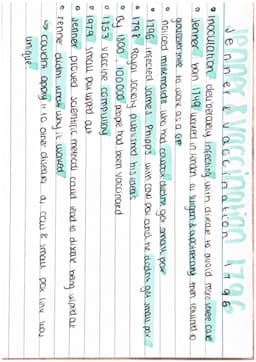 Jenner & Vaccination 1796
Jenner & Vaccination 1796
• inoculation: deliberately infecting with disease to avoid more severe case
• Jenner born 1749 trained in London as surgeon & then returned to
gloucestershire to work as a GP
• noticed milkmaids who had cowpox didn't get small pox
• 1796 injected James Phipps with cow pox and he didn't get small pox
• 1798 Royal Society published his ideas
• By 1800, 100,000 people had been vaccinated
• 1853 vaccine compulsory
• 1979 small pox wiped out
• Jenner proved scientific method could lead to disease being wiped out
• Jenner didn't know why it worked
↳ couldn't apply it to other diseases as cow & small pox link was
unique